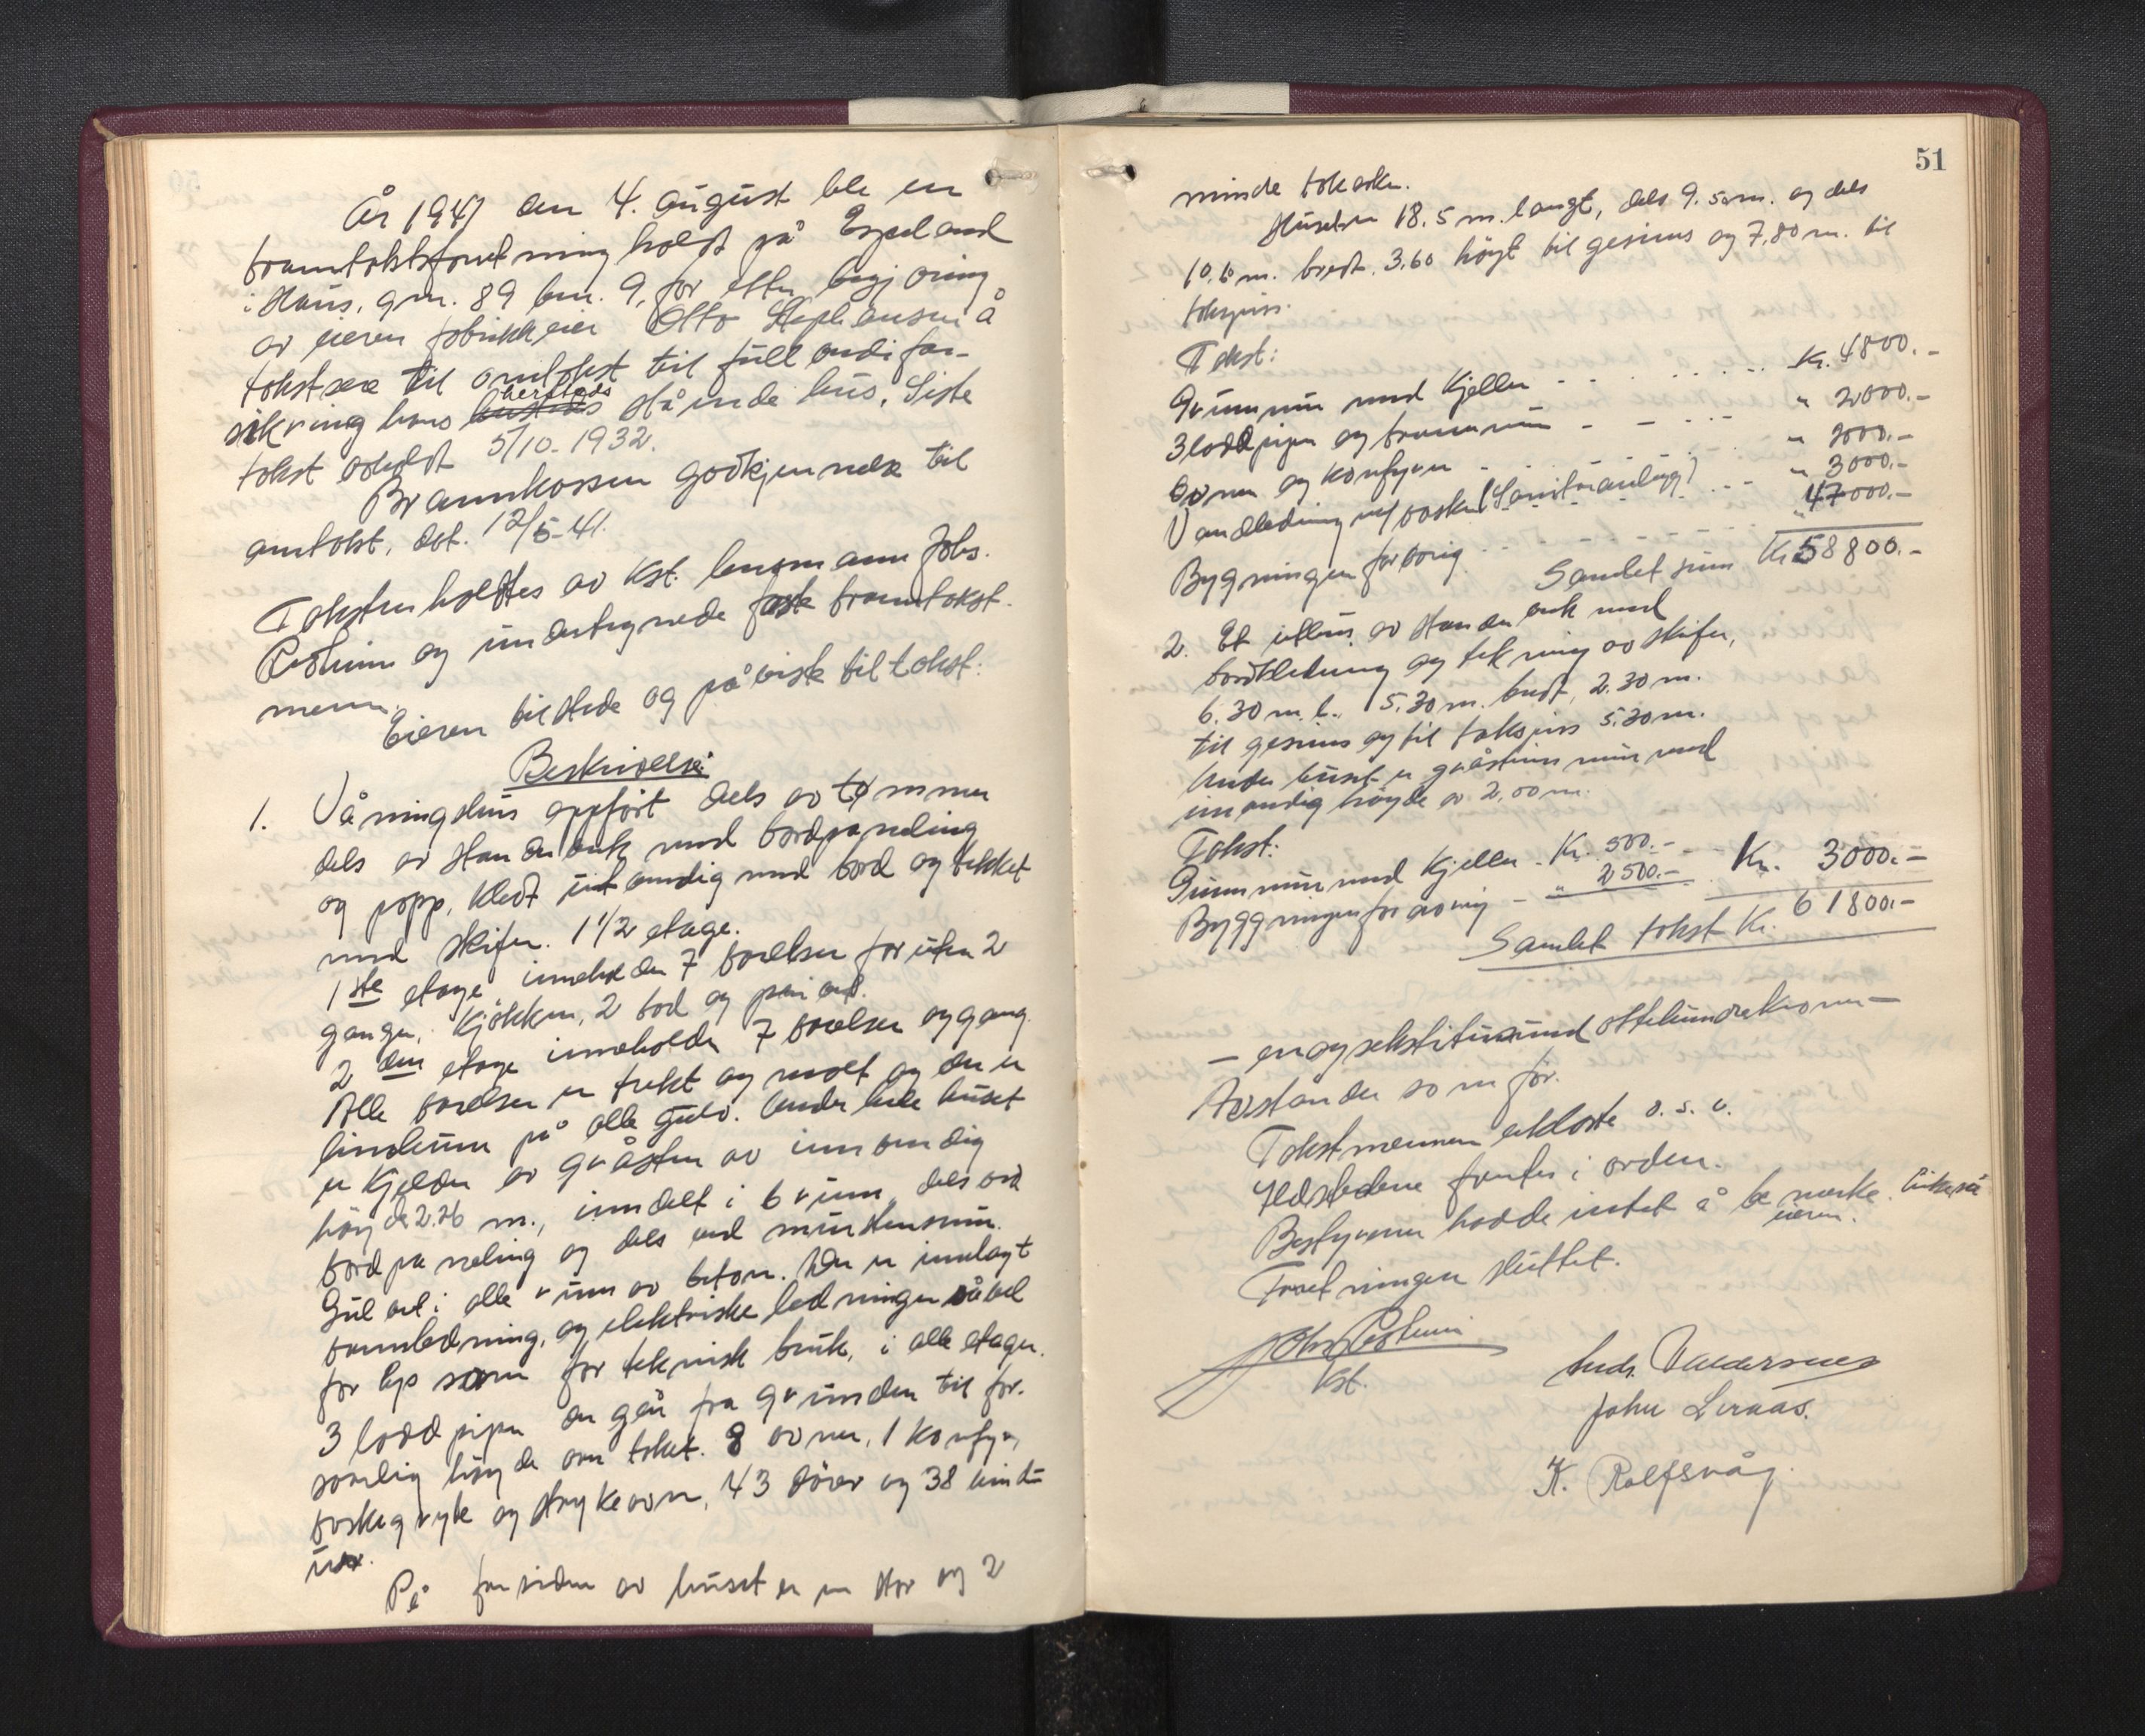 År 1941 den 4. august ble en
branntakstforretning holdt på Espeland
i Haus, gnr. 89 bnr. 9, for efter begjæring
av eieren fabrikkeier Otto Stephansen å
takstere til omtakst til full verdi for-
sikring hans herstads stående hus. Siste
takst avholdt 5/10-1932.
Brannkassen godkjennelse til
omtakst, dat. 12/5-41.
Taksten holdtes av Kst. lensmann Johs.
Redheim og undertegnede faste branntakst-
menn.
Eieren tilstede og påviste til takst:
Beskrivelse:
1. Våningshus oppført dels av tømmer
dels av standerverk med bordpaneling
og papp, kledt utvendig med bord og tekket
med skifer. 1 1/2 etage.
1ste etage inneholder 7 værelser foruten 2
ganger, kjøkken, 2 bod og privet.
2den etage inneholder 7 værelser og gang.
Alle værelser er trekt og malt og der er
linoleum på alle gulv. Under hele huset
er kjelder av gråsten av innvendig
høyde 2.26 m., inndelt i 6 rum, dels ved
bordpaneling og dels ved murstensmur.
Gulvet i alle rum av beton. Der er innlagt
vannledning, og elektriske ledninger såvel
for lys som for teknisk bruk, i alle etager.
3 lodd piper der går fra grunden til for-
svarlig høyde over taket. 8 ovner, 1 komfyr,
vaskegryte og strykeovn, 43 dører og 38 vindu-
uer.
På forsiden av huset er en stor og 2
51
mindre takarker.
Huset er 18.5 m. langt, dels 9.50 m. og dels
10.60 m. bredt, 3.60 høyt til gesims og 7.80 m. til
takspiss.
Takst:
Grunnmur med kjeller . . . . . . . Kr. 4800.-
3 lodd piper og brannmur - - - . . " 2000.-
Ovner og komfyrer - . . . . . . " 2000.-
Vandledning m/ vasker (Sanitæranlegg) . . . - - " 3000.-
Bygningen forøvrig . . - - - - - " 47000.-
Samlet sum Kr 58800.-
2. Et uthus av standerverk med
bordkledning og tekning av skifer,
6.30 m. l., 5.30 m. bredt, 2.30 m.
til gesims og til takspiss 5.30 m.
Under huset er gråstens mur med
innvendig høyde av 2,00 m.
Takst:
Grunnmur med kjeller - Kr. 500.- - - Kr. 3000.-
Byggningen forøvrig - " 2500.-
Samlet takst Kr. 61800.-
- en og sekstitusund ottehundrekroner -
Avstander som før.
Takstmennene erklærte o. s. v.
Ildstedene fantes i orden.
Bestyreren hadde intet å bemerke. Likeså
eieren.
Forretningen sluttet.
Johs Redheim
Kst.
Ands. Valdersnes
John Liraas.
K. Rolfsvåg.